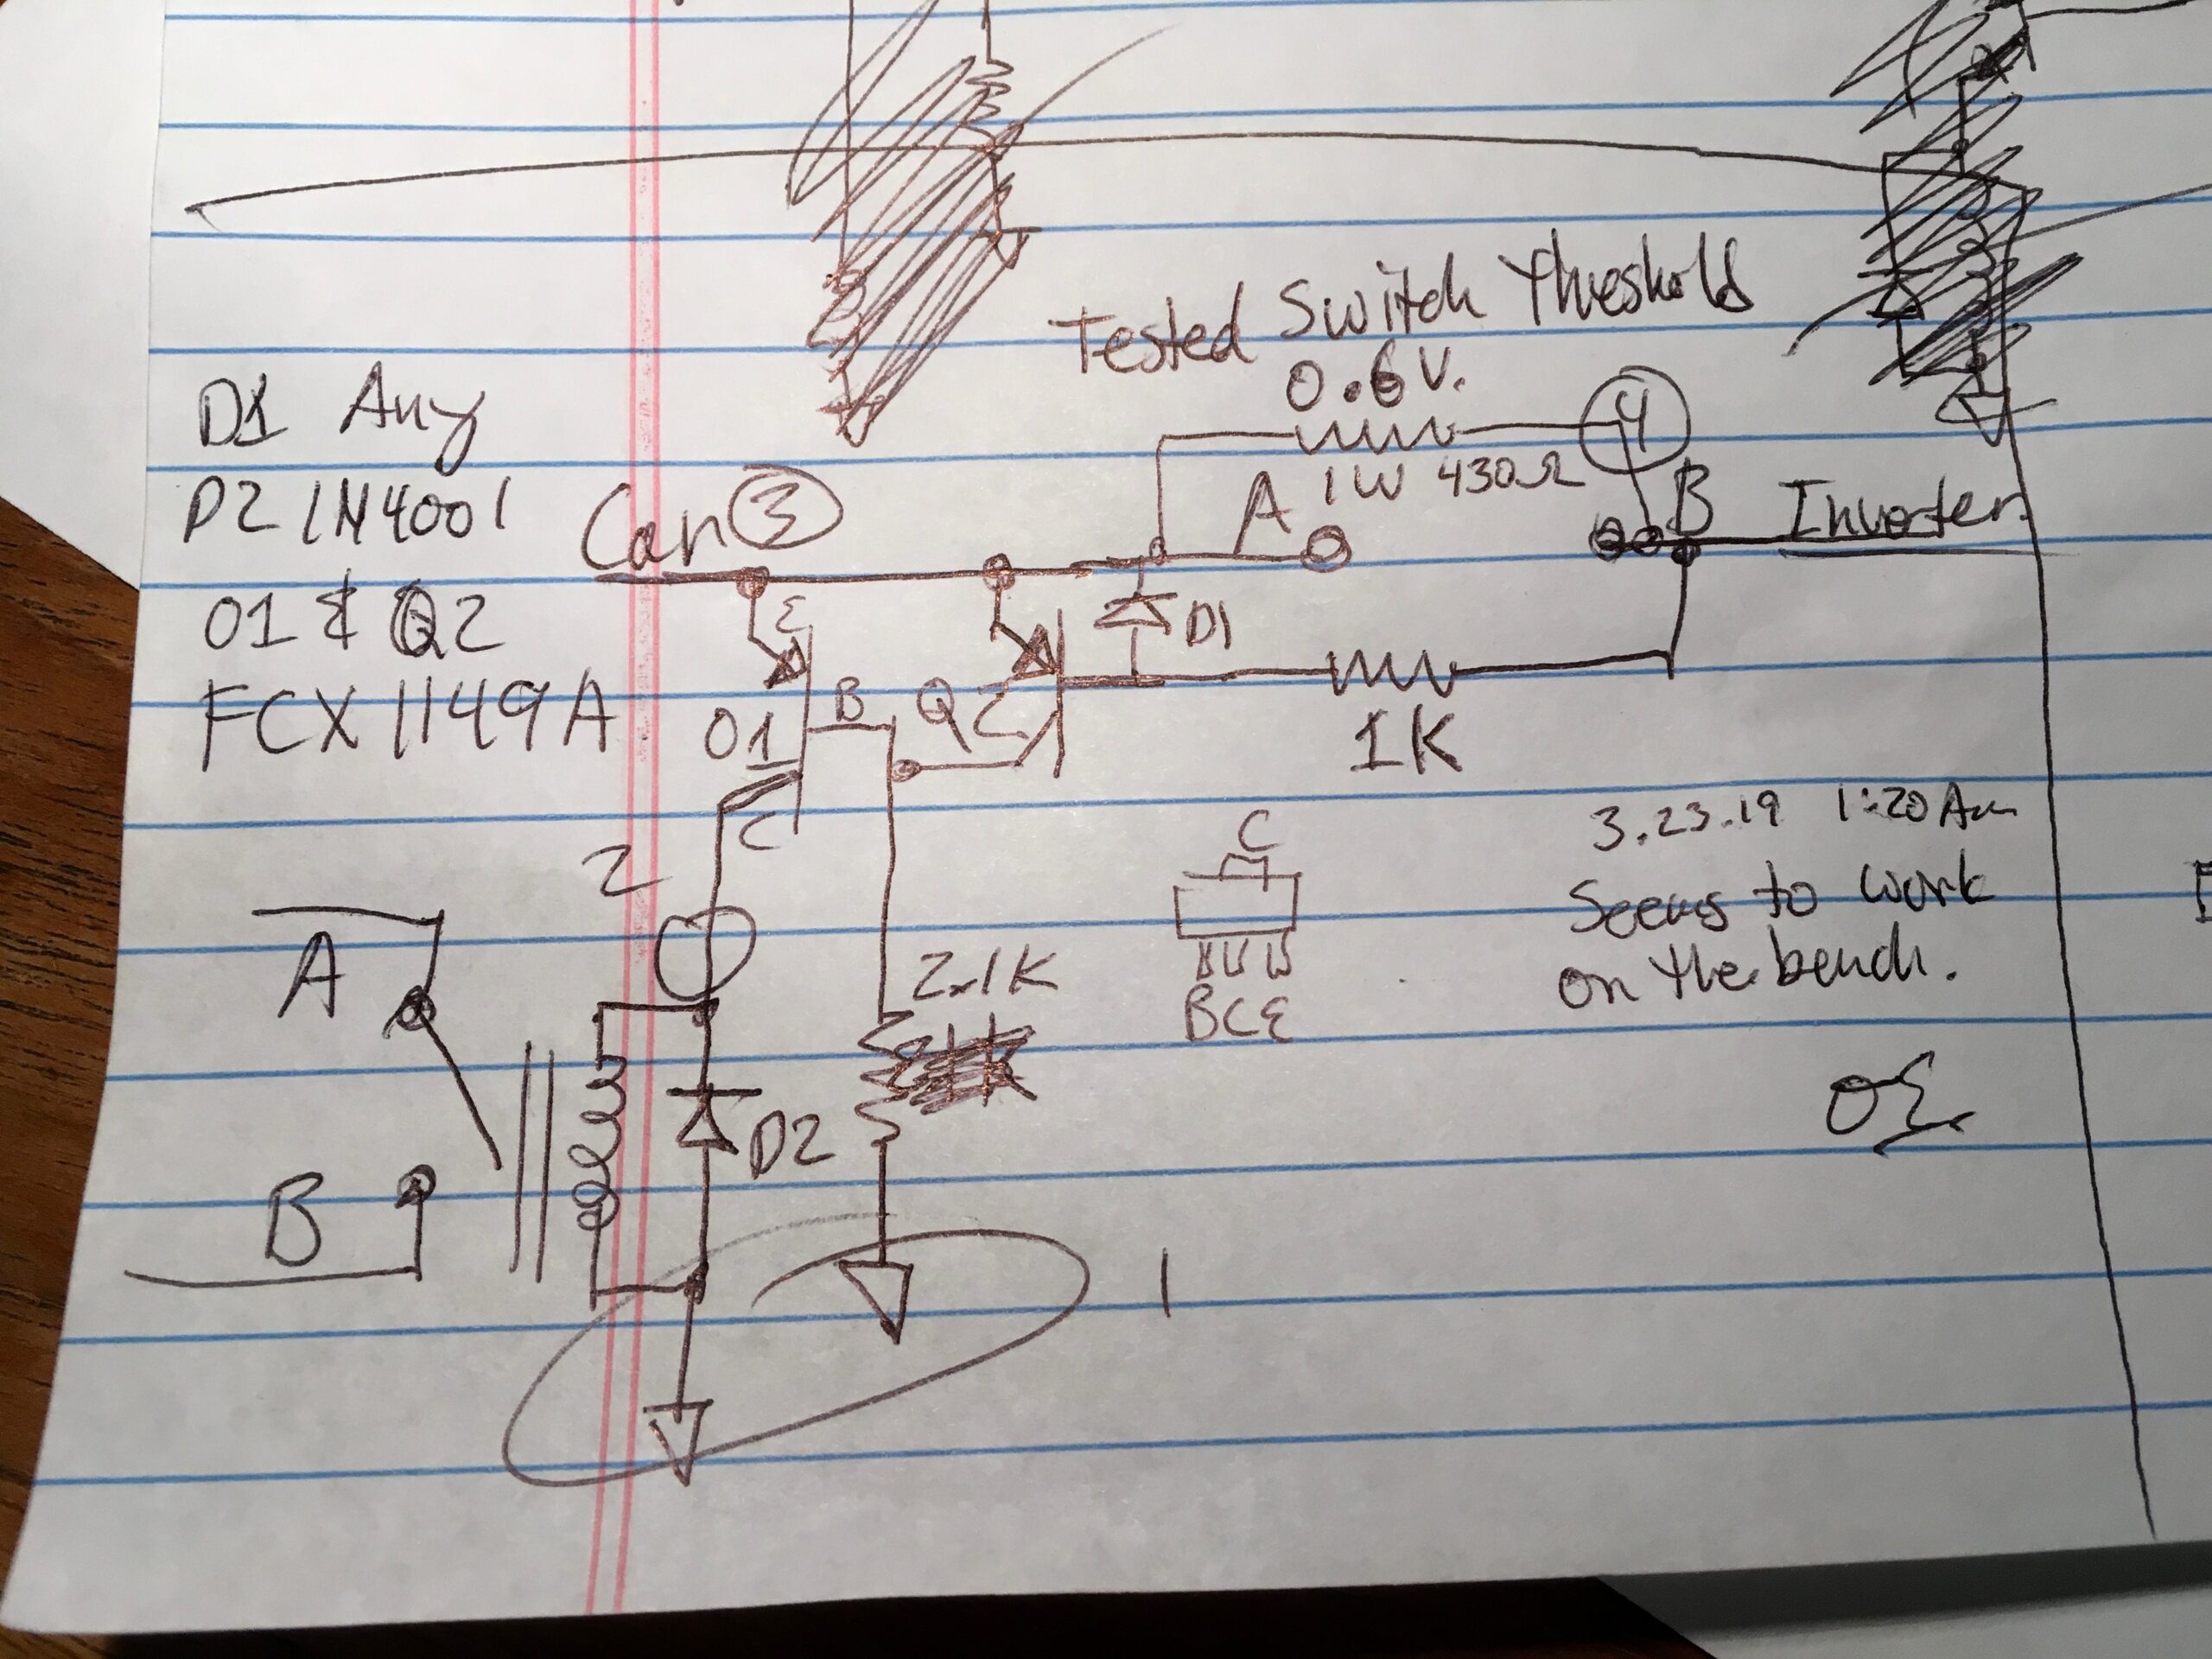 Tested Switch Threshold
0.6V.
D1 Any
D2 1N4001
Q1 & Q2
FCX1149A
Car 3
4
1W 430Ω
A
B Inverter
E
D1
B
Q1
Q2
C
1K
2
3.23.19 1:20 Am
Seems to work
on the bench.
C
BCE
A
2x1K
D2
B
1